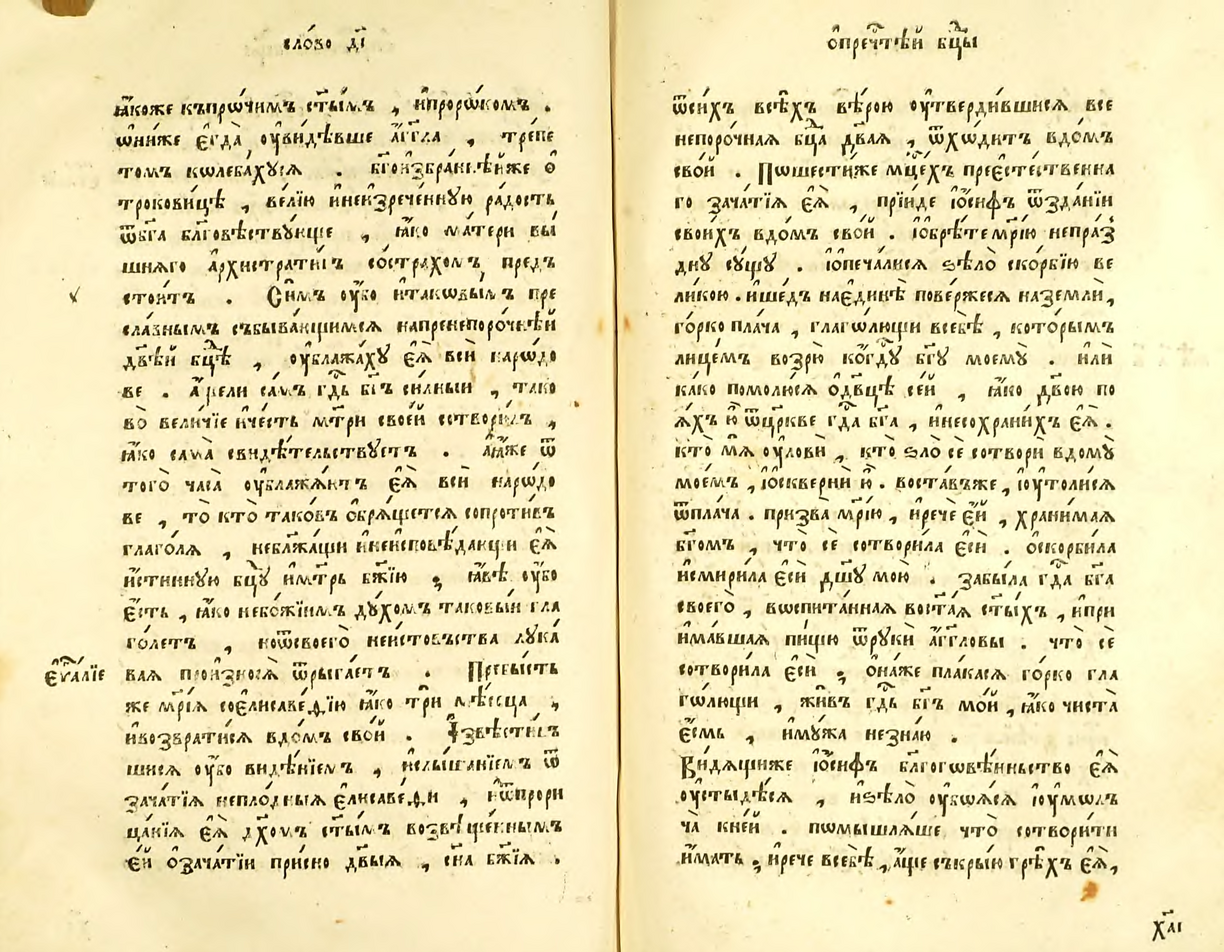 сло́во д҃і
ꙗ҆́коже къпрѡ́чимъ ст҃ы́мъ , и҆прорѡ́комъ .
ѡ҆ни́же є҆гда̀ ᲂу҆ви́дѣвше а҆́гг҃ла , тре́пе
томъ кѡлеба́хꙋсѧ . бг҃ои҆збра́ннѣйже ѻ҆
трокови́цѣ , ве́лїю и҆неи҆зрече́ннꙋю ра́дость
ѿбг҃а бл҃говѣствꙋ́юще , ꙗ҆́ко ма́тери вы́
шнѧго а҆рхистрати́гъ состра́хомъ предъ
стои́тъ . Си́мъ ᲂу҆́бо и҆такѡвы́мъ пре
сла́внымъ събыва́ющимсѧ напренепоро́чнѣй
дв҃ѣй бц҃ѣ , ᲂу҆блажа́хꙋ є҆ѧ̀ всѝ наро́до
ве . А҆́щели са́мъ гд҃ь бг҃ъ си́лныи , тако
во̀ вели́чїе и҆че́сть мт҃ри свое́й сотвори́лъ ,
ꙗ҆́ко сама̀ свидѣ́тельствꙋетъ . а҆ꙗ҆́же ѿ
того̀ часа̀ ᲂу҆блажа́ютъ є҆ѧ̀ всѝ наро́до
ве , то̀ кто̀ тако́въ ѻ҆брѧ́щетсѧ сопроти́въ
глаго́лѧ , неблажа́щи и҆неи҆сповѣ́дающи є҆ѧ̀
и҆́стиннꙋю бц҃ꙋ и҆мт҃рь бж҃їю ; ꙗ҆́вѣ ᲂу҆́бо
є҆́сть , ꙗ҆́ко небо́жїимъ дꙋ́хомъ таковы́й гла
го́летъ , ноѿсвоегѡ̀ неи҆́стовъства лꙋка́
є҆ѵⷢ҇а́лїе
ваѧ произносѧ̀ ѿрыга́етъ . Пребы́сть
же мр҃і́ѧ соє҆лисаве́ѳїю ꙗ҆́ко трѝ мѣ́сѧца ,
и҆возврати́сѧ вдо́мъ сво́й . И҆звѣсти́в
шисѧ ᲂу҆́бо видѣ́нїемъ , и҆слы́шанїемъ ѿ
зача́тїѧ непло́дныѧ є҆лисаве́ѳи , и҆ѿпрори
ца́нїѧ є҆ѧ̀ дх҃омъ ст҃ы́мъ возвѣще́ннымъ
є҆́й ѻ҆зача́тїи при́сно дв҃ыѧ , сн҃а бж҃їѧ .
ѻ҆преч҃тѣй бц҃ы
ѿси́хъ всѣ́хъ вѣ́рою ᲂу҆тверди́вшисѧ все
непоро́чнаѧ бц҃а дв҃аѧ , ѿхѡ́дитъ вдо́мъ
сво́й . Пѡше́стиже мц҃ехъ преє҆сте́ственна
го зача́тїѧ є҆ѧ̀ , прїи́де і҆ѡ́сифъ ѿзда́нїи
свои́хъ вдо́мъ сво́й . і҆ѻбрѣ́те мр҃і́ю непра́з
днꙋ сꙋ́щꙋ . і҆ѻпеча́лисѧ ѕѣло̀ ско́рбїю ве
ли́кою . и҆ше́дъ нає҆ди́нѣ пове́ржесѧ на землѝ ,
го́рко пла́ча , глаго́лющи всебѣ̀ , кото́рымъ
лице́мъ возрю̀ ко́гд҃ꙋ бг҃ꙋ моемꙋ̀ . и҆лѝ
ка́ко помолю́сѧ ѻ҆дв҃цѣ се́й , ꙗ҆́ко дв҃ою по
ѧ́хъ ю҆̀ ѿцр҃кве гд҃а бг҃а , и҆несохрани́хъ є҆ѧ̀ .
кто̀ мѧ̀ ᲂу҆ловѝ , кто̀ ѕло̀ сѐ сотворѝ вдомꙋ̀
мое́мъ , і҆ѻскверни́ ю҆̀ . воста́въже , і҆ᲂу҆толи́сѧ
ѿпла́ча . призва̀ мр҃і́ю , и҆речѐ є҆́й , храни́маѧ
бг҃омъ , что̀ сѐ сотвори́ла є҆сѝ . ѻ҆скорби́ла
и҆смири́ла є҆сѝ дш҃ꙋ мою̀ . забы́ла гд҃а бг҃а
своего̀ , вѡспита́ннаѧ воста́ѧ ст҃ы́хъ , и҆при
и҆ма́вшаѧ пи́щꙋ ѿрꙋкѝ а҆́гг҃ловы . что̀ сѐ
сотвори́ла є҆сѝ ; ѻ҆на́же пла́касѧ го́рко гла
го́лющи , жи́въ гд҃ь бг҃ъ мо́й , ꙗ҆́ко чиста̀
є҆́смь , и҆мꙋ́жа незна́ю .
Ви́дѧщиже і҆ѡ́сифъ бл҃гоговѣ́иньство є҆ѧ̀
ᲂу҆стыдѣ́сѧ , и҆ѕѣло̀ ᲂу҆боѧ́сѧ і҆ᲂу҆мо́лъ
ча кне́й . пѡмышлѧ́ше что̀ сотвори́ти
и҆́мать , и҆речѐ всебѣ̀ , а҆́ще съкры́ю грѣ́хъ є҆ѧ̀ ,
х҃аі